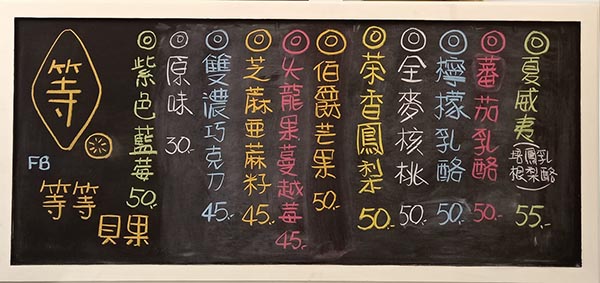 夏威夷(培根鳳梨乳酪) 55.-
蕃茄乳酪 50.-
檸檬乳酪 50.-
全麥核桃 50.-
茶香鳳梨 50.-
伯爵芒果 50.-
火龍果蔓越莓 45.-
芝蔴亜蔴籽 45.-
雙濃巧克力 45.-
原味 30.-
紫色藍莓 50.-
等
FB
等等
貝果